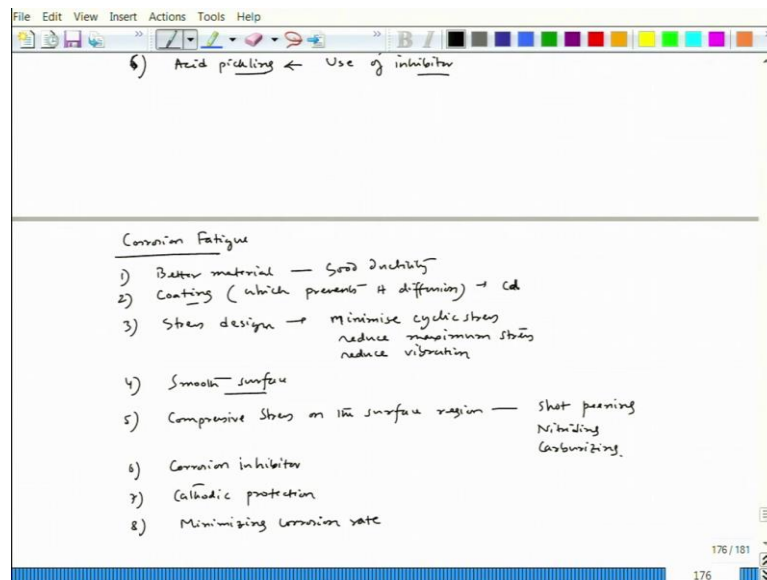 File Edit View Insert Actions Tools Help
B I
6) Acid pickling ← Use of inhibitor
Corrosion Fatigue
1) Better material — Good ductility
2) Coating (which prevents H diffusion) → Cd
3) Stress design → minimise cyclic stress
reduce maximum stress
reduce vibration
4) Smooth surface
5) Compressive stress on the surface region — shot peening
Nitriding
Carburizing.
6) Corrosion inhibitor
7) Cathodic protection
8) Minimizing corrosion rate
176 / 181
176